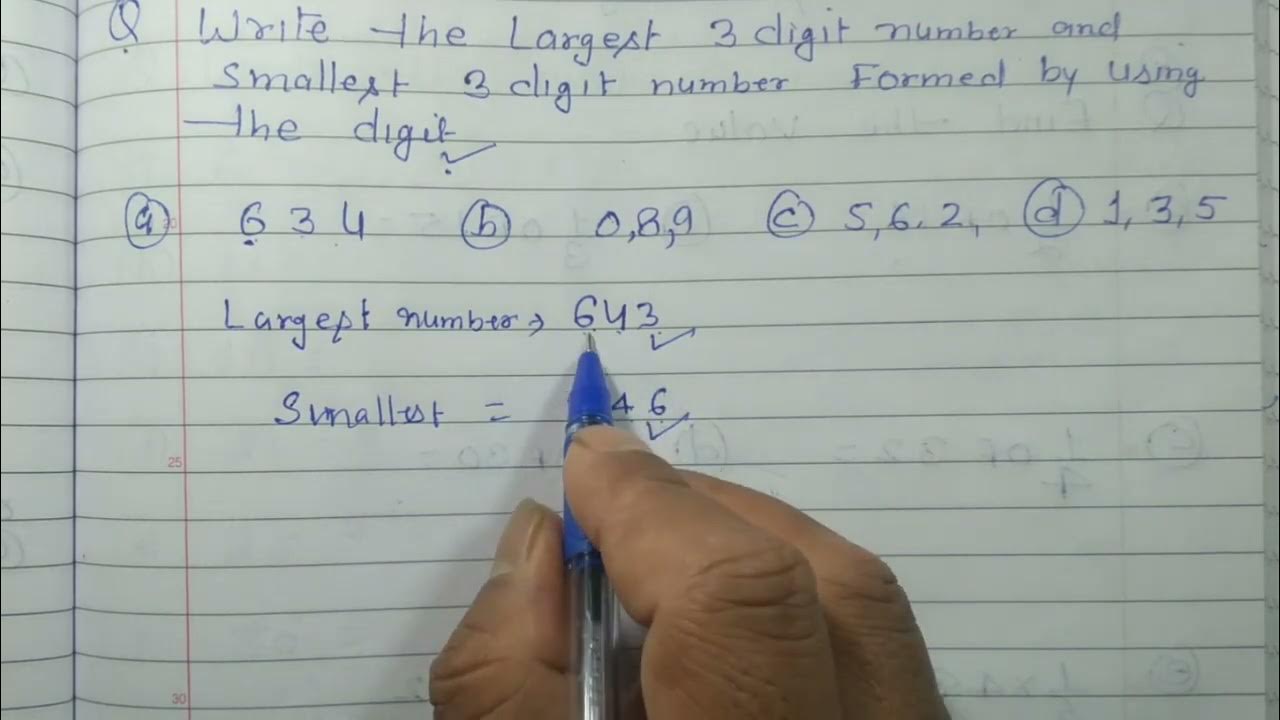 Q Write the Largest 3 digit number and
Smallest 3 digit number Formed by using
the digit
(a) 6 3 4 (b) 0,8,9 (c) 5,6.2, (d) 1,3,5
Largest number → 643
Smallest = 46
25
30